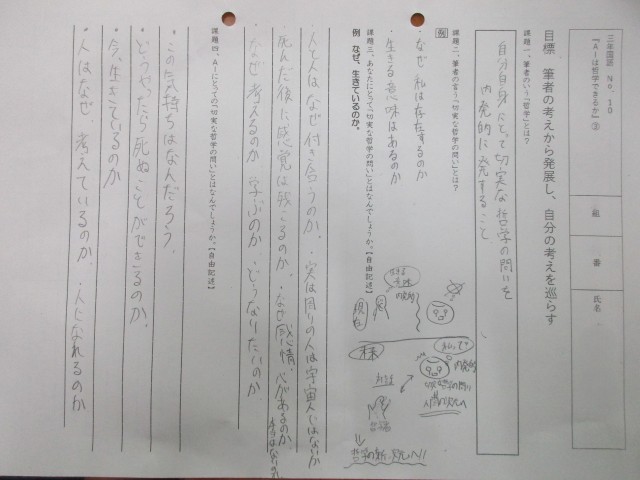 三年国語 No.10
『AIは哲学できるか』③
組 番 氏名
目標 筆者の考えから発展し、自分の考えを巡らす
課題一、筆者のいう「哲学」とは？
自分自身にとって切実な哲学の問いを
内発的に発すること
課題二、筆者の言う「切実な哲学の問い」とは？
例
・なぜ私は存在するのか
・生きる意味はあるのか
課題三、あなたにとって、「切実な哲学の問い」とはなんでしょうか。【自由記述】
例 なぜ、生きているのか。
人と人はなぜ付き合うのか。・実は周りの人は宇宙人ではないか
死んだ後に感覚は残るのか。・なぜ感情、心があるのか
・なぜ考えるのか 学ぶのか どうなりたいのか
課題四、AIにとっての「切実な哲学の問い」とはなんでしょうか。【自由記述】
・この気持ちはなんだろう。
・どうやったら死ぬことができるのか。
・今、生きているのか
・人はなぜ、考えているのか。・人になれるのか